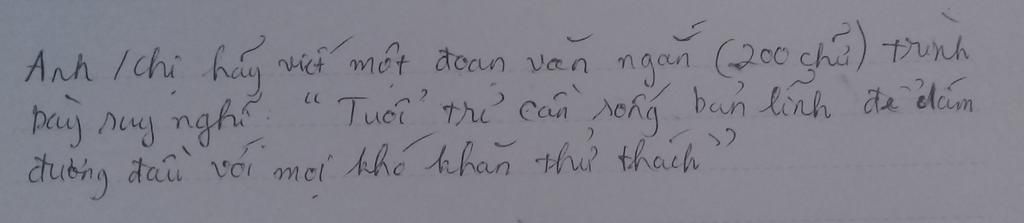 Anh / chị hãy viết một đoạn văn ngắn (200 chữ) trình
bày suy nghĩ: "Tuổi trẻ cần sống bản lĩnh để dám
đương đầu với mọi khó khăn thử thách"